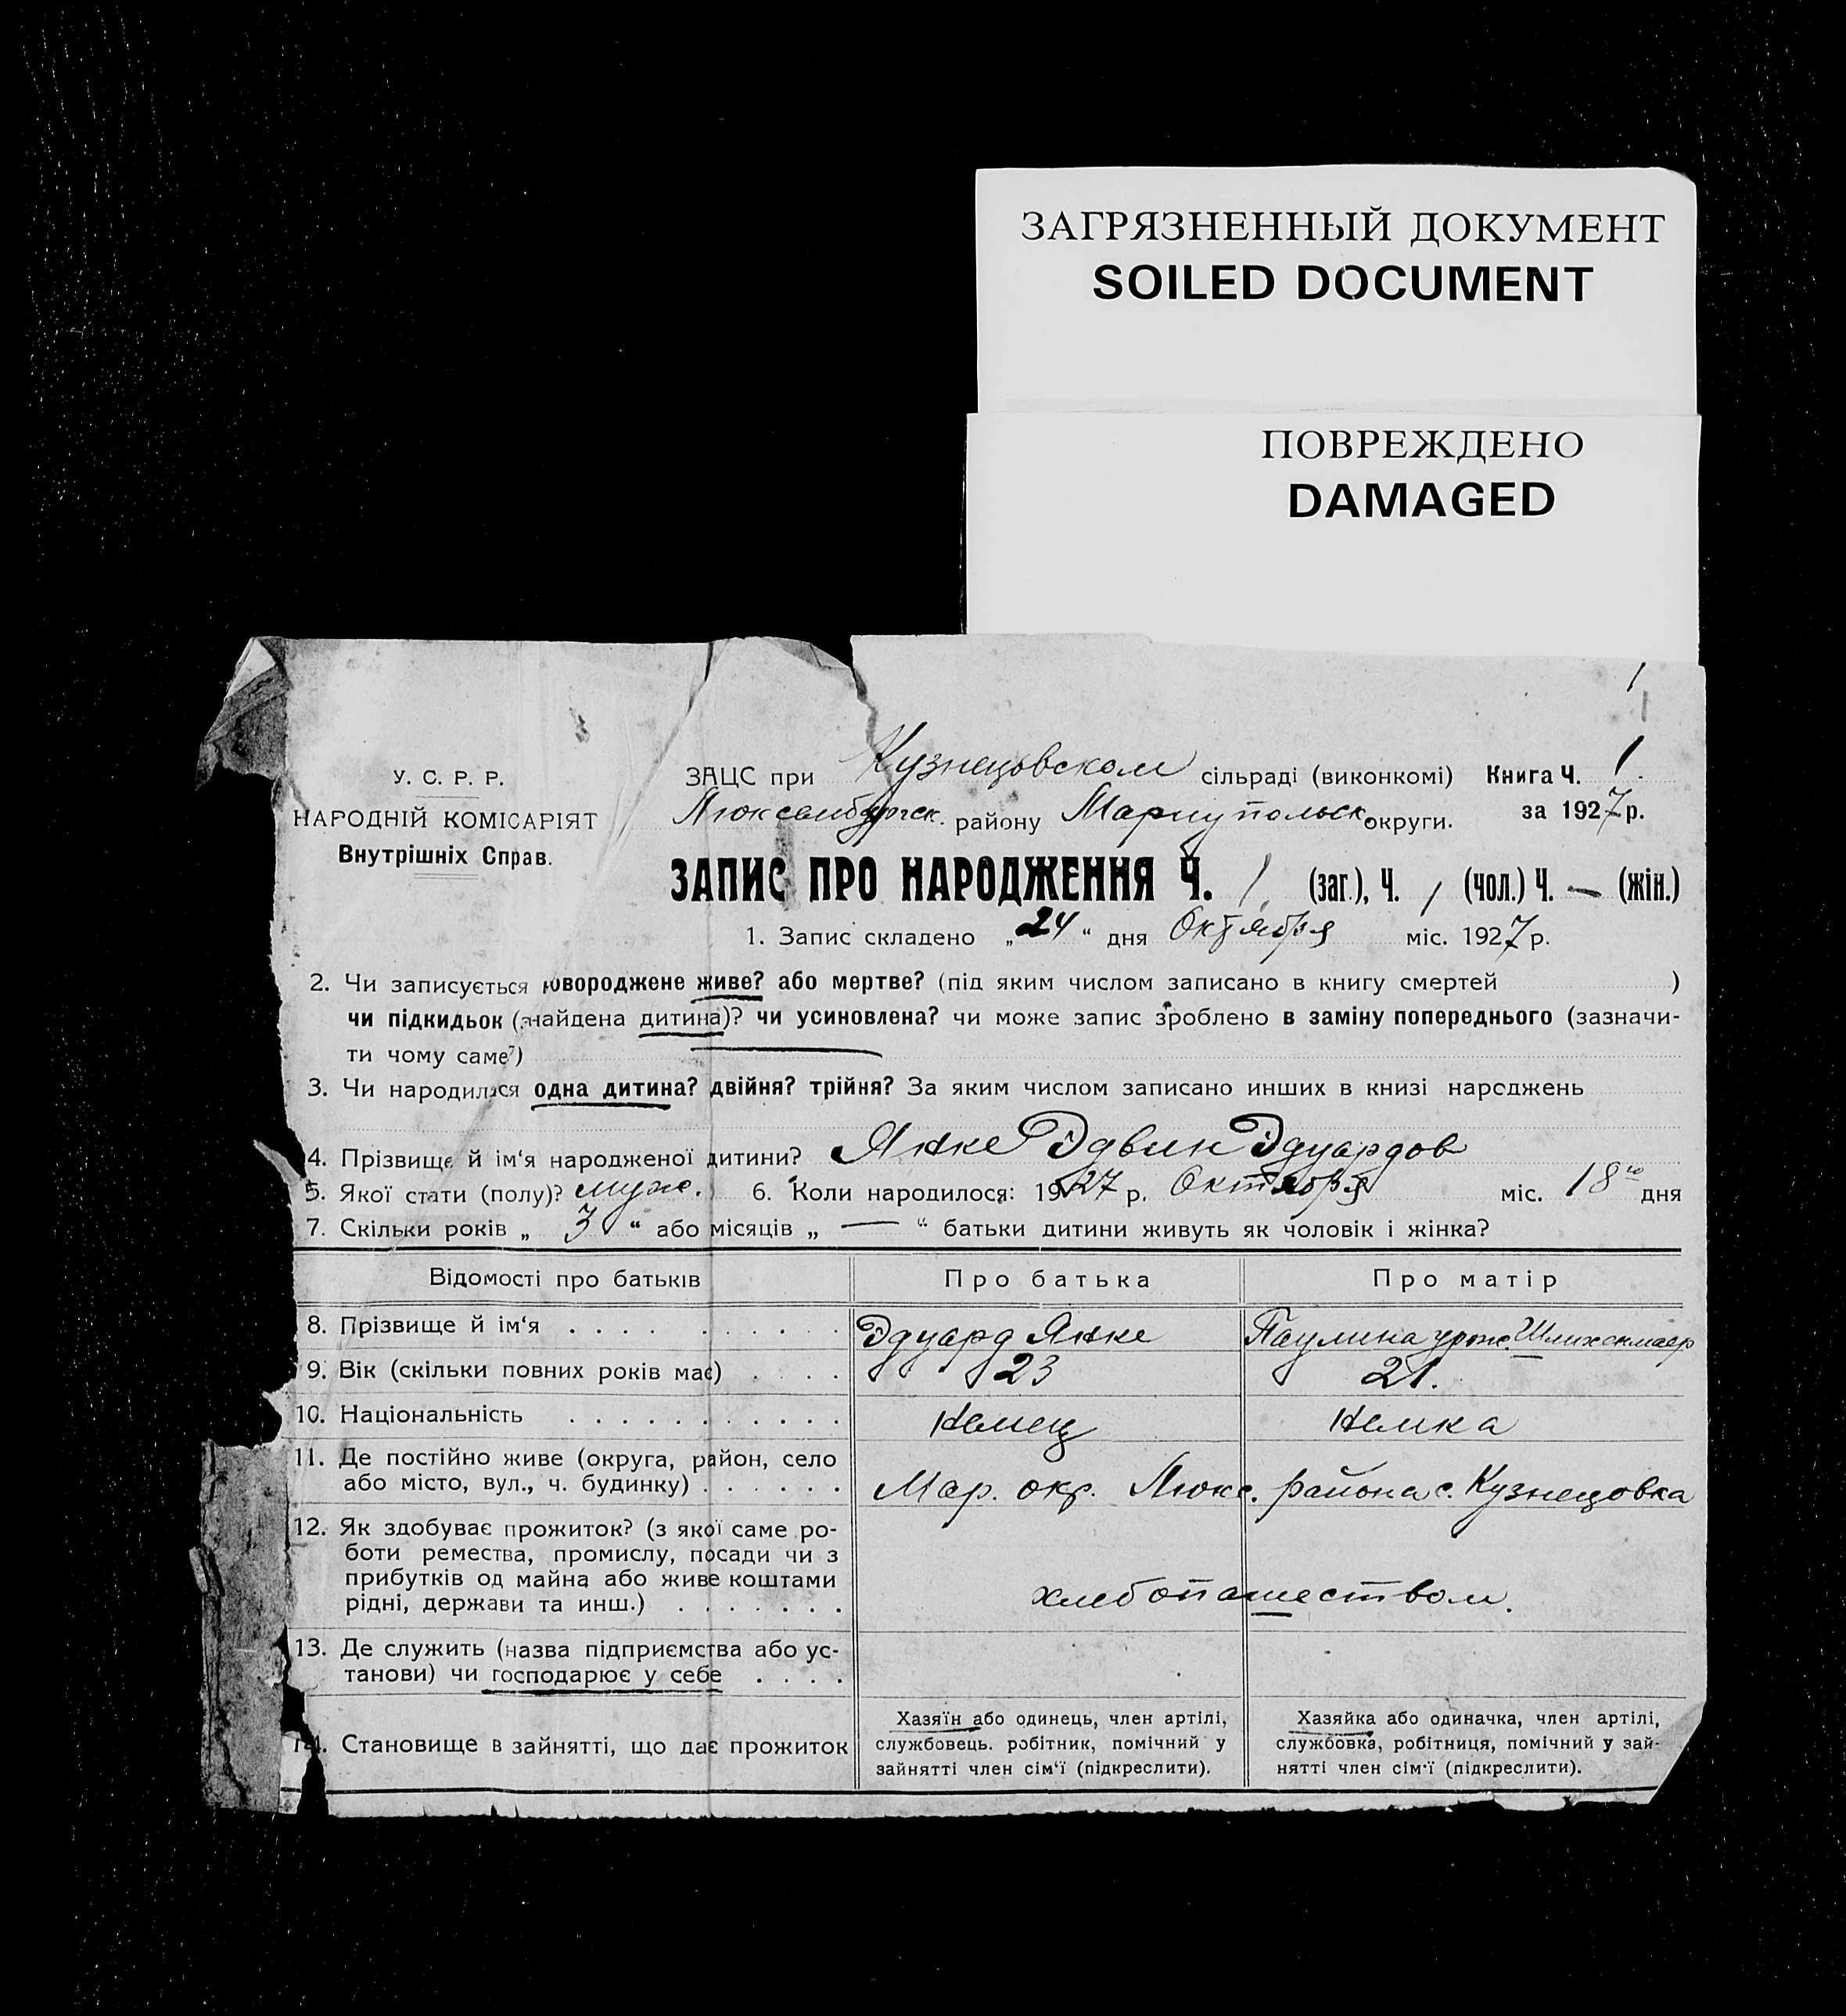 ЗАГРЯЗНЕННЫЙ ДОКУМЕНТ
SOILED DOCUMENT
ПОВРЕЖДЕНО
DAMAGED
1
1
У. С. Р. Р.
НАРОДНІЙ КОМІСАРІЯТ
Внутрішніх Справ.
ЗАЦС при Кузнецовском сільраді (виконкомі) Книга Ч. 1.
Люксембургск. району Мариупольск округи. за 1927 р.
ЗАПИС ПРО НАРОДЖЕННЯ Ч. 1 (заг.), Ч. 1 (чол.) Ч. — (жін.)
1. Запис складено „24“ дня Октября міс. 1927 р.
2. Чи записується новороджене живе? або мертве? (під яким числом записано в книгу смертей )
чи підкидьок (знайдена дитина)? чи усиновлена? чи може запис зроблено в заміну попереднього (зазначи-
ти чому саме?)
3. Чи народилася одна дитина? двійня? трійня? За яким числом записано инших в книзі народжень
4. Прізвище й ім‘я народженої дитини? Янке Эдвин Эдуардов
5. Якої стати (полу)? муж. 6. Коли народилося: 1927 р. Октября міс. 18го дня
7. Скільки років „ 3 “ або місяців „ — “ батьки дитини живуть як чоловік і жінка?
Відомості про батьків Про батька Про матір
8. Прізвище й ім‘я . . . . . . . . . . Эдуард Янке Паулина урож.
9. Вік (скільки повних років має) . . . . 23 21.
10. Національність . . . . . . . . . . . Немец Немка
11. Де постійно живе (округа, район, село
або місто, вул., ч. будинку) . . . . . . Мар. окр. Люкс. района с. Кузнецовка
12. Як здобуває прожиток? (з якої саме ро-
боти ремества, промислу, посади чи з
прибутків од майна або живе коштами
рідні, держави та инш.) . . . . . . . хлебопашеством.
13. Де служить (назва підприємства або ус-
танови) чи господарює у себе . . . .
14. Становище в зайнятті, що дає прожиток
Хазяїн або одинець, член артілі,
службовець. робітник, помічний у
зайнятті член сім‘ї (підкреслити).
Хазяйка або одиначка, член артілі,
службовка, робітниця, помічний у зай-
нятті член сім‘ї (підкреслити).